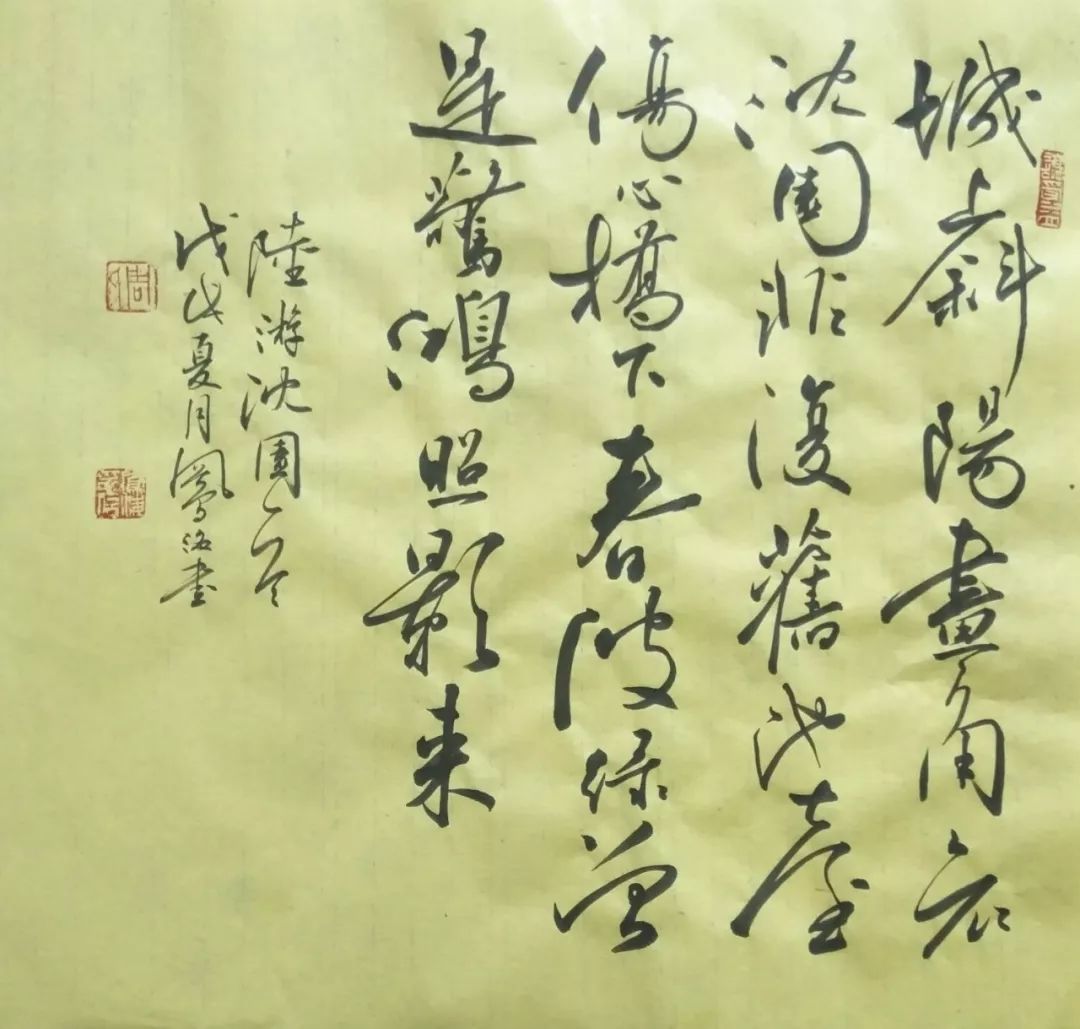 城上斜陽畫角哀
沈園非復舊池臺
傷心橋下春波綠曾
是驚鴻照影來
陸游沈園一首
戊戌夏月鳳書